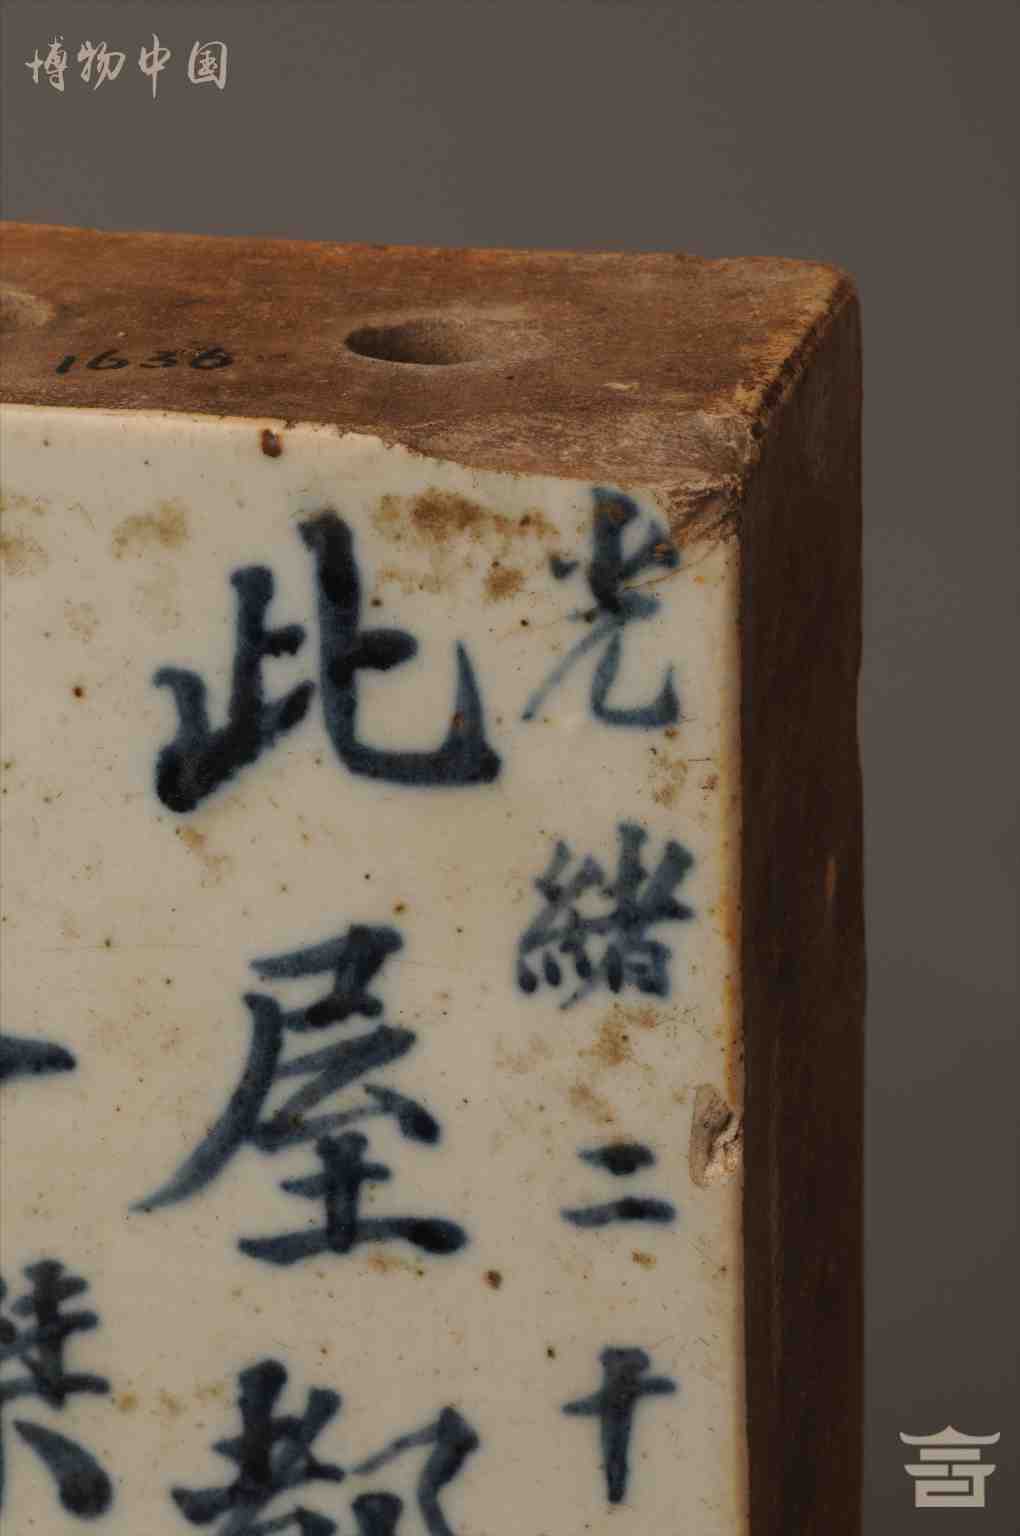 博物中国
1636
光緒二十
此屋鄰